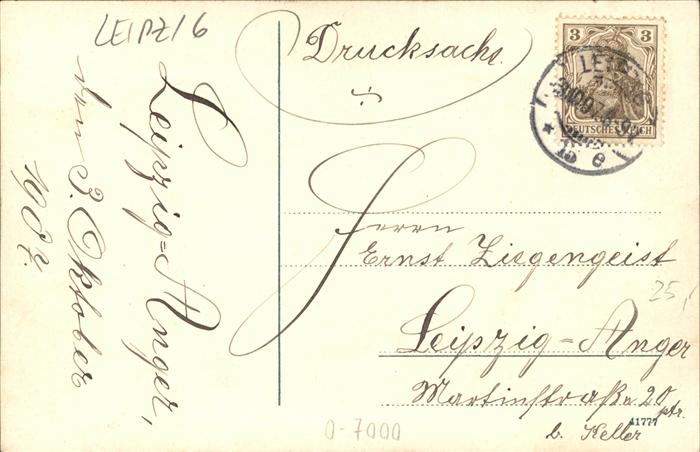 LEIPZIG
Drucksache.
3 3
DEUTSCHES REICH
LEIPZIG
Leipzig-Anger,
den 3. Oktober
1907.
Herrn
Ernst Zisgengeist
Leipzig-Anger
Martinstraße 20 ptr.
b. Keller
25,
41777
0-7000